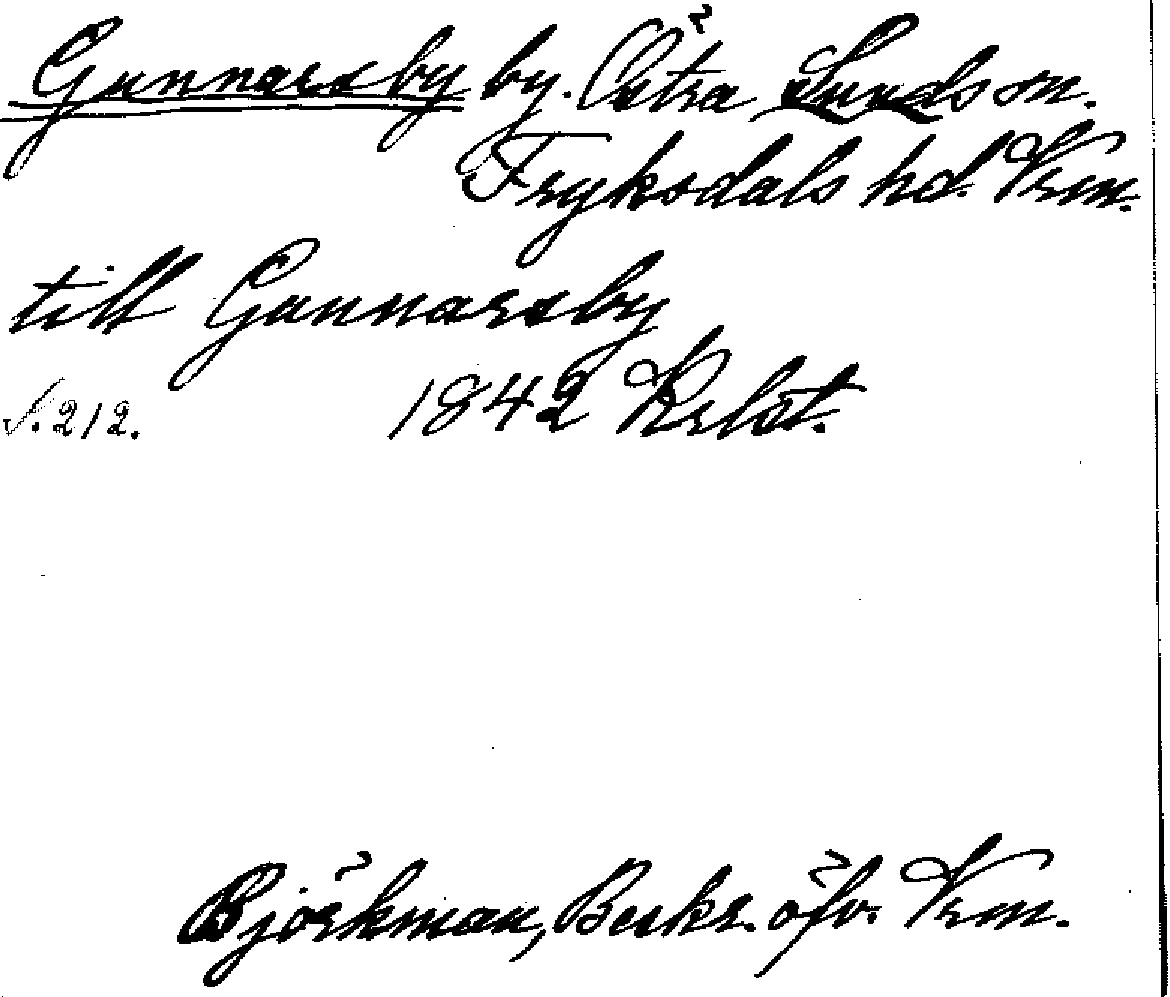 Gunnarsby by. Östra Sunds sn.
Fryksdals hd. Vrm.
till Gunnarsby
S. 212. 1842 Krlst.
Björkman, Beskr. öfv. Vrm.